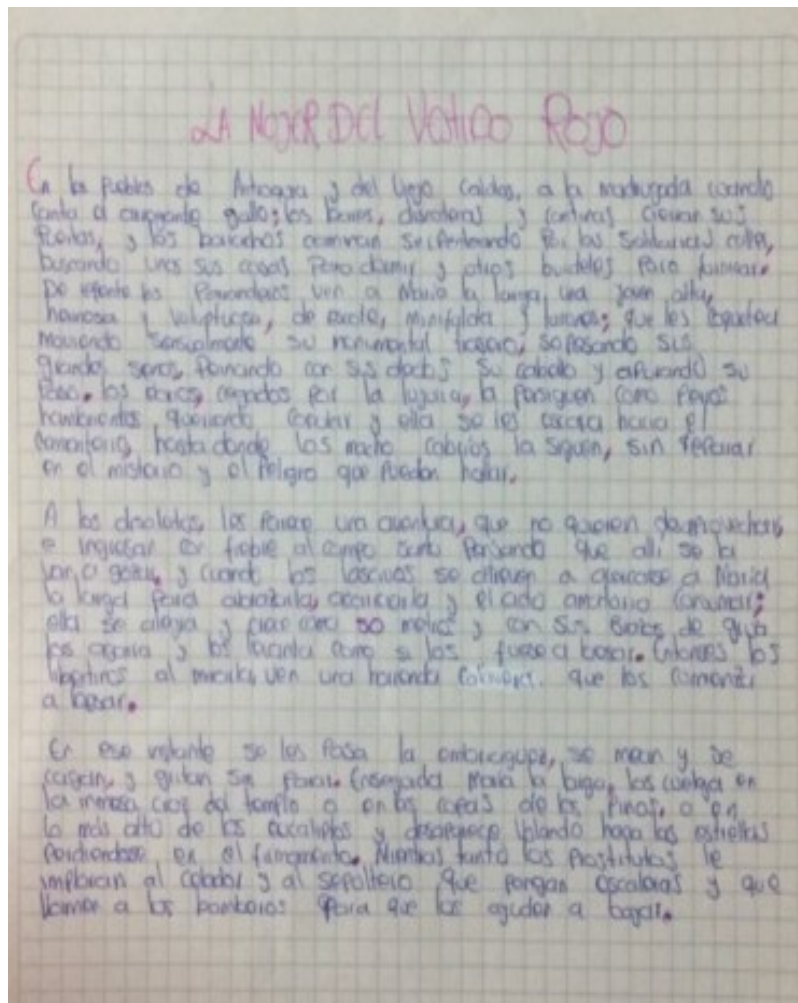 LA MUJER DEL VESTIDO ROJO
En los pueblos de Antioquia y del viejo Caldas, a la madrugada cuando
canta el gallo; los bares, y cantinas cierran sus
puertas, y los borrachos comienzan por las solitarias calles,
buscando unos sus casas para dormir y otros burdeles para
De repente los ven a María la larga, una joven alta,
hermosa y voluptuosa, de escote, minifalda y que les
moviendo sensualmente su monumental trasero, sopesando sus
grandes senos, peinando con sus dedos su cabello y apurando su
paso. los cegados por la lujuria, la persiguen como
hambrientos, queriendo y ella se les hacia el
cementerio, hasta donde los macho cabríos la siguen, sin reparar
en el misterio y el peligro que puedan hallar.
A los les parece una aventura, que no quieren
e ingresan en al campo santo pensando que allí se la
van a gozar, y cuando los lascivos se atreven a acercarse a María
la larga para abrazarla, acariciarla y el acto
ella se aleja y crece como 50 metros y con sus brazos de
los agarra y los levanta como si los fuese a besar. Entonces los
libertinos al mirarla, ven una horrenda calavera. que los comienza
a besar.
En ese instante se les pasa la embriaguez, se mean y se
cagan, y gritan sin parar. Ensegada María la larga, los cuelga en
la inmensa cruz del templo o en las copas de los pinos, o en
lo más alto de los eucaliptos y desaparece volando hacia las estrellas
perdiendose en el firmamento. Mientras tanto las prostitutas le
imploran al celador y al sepultero que pongan escaleras y que
llamen a los bomberos para que los ayuden a bajar.